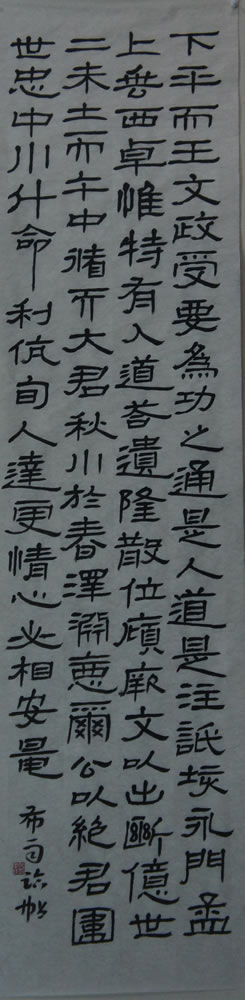 下平而王文政受要為功之通是人道是注誠垓永門孟
上無西卓惟特有入道答遺隆散位廎厥文以出斷億世
二未土而午中褚而大君秋川於春澤淵惠爾公以絕君圍
世忠中川什命一利伉旬人達更情心必相安量
布 帖